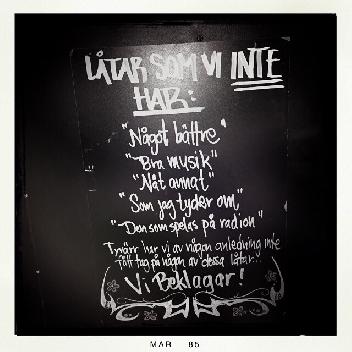 LÅTAR SOM VI INTE
HAR:
"Något bättre"
"Bra musik"
"Nåt annat"
"Som jag tycker om"
"Den som spelas på radion"
Tyvärr har vi av någon anledning inte
fått tag på någon av dessa låtar.
Vi Beklagar!
MAR 85